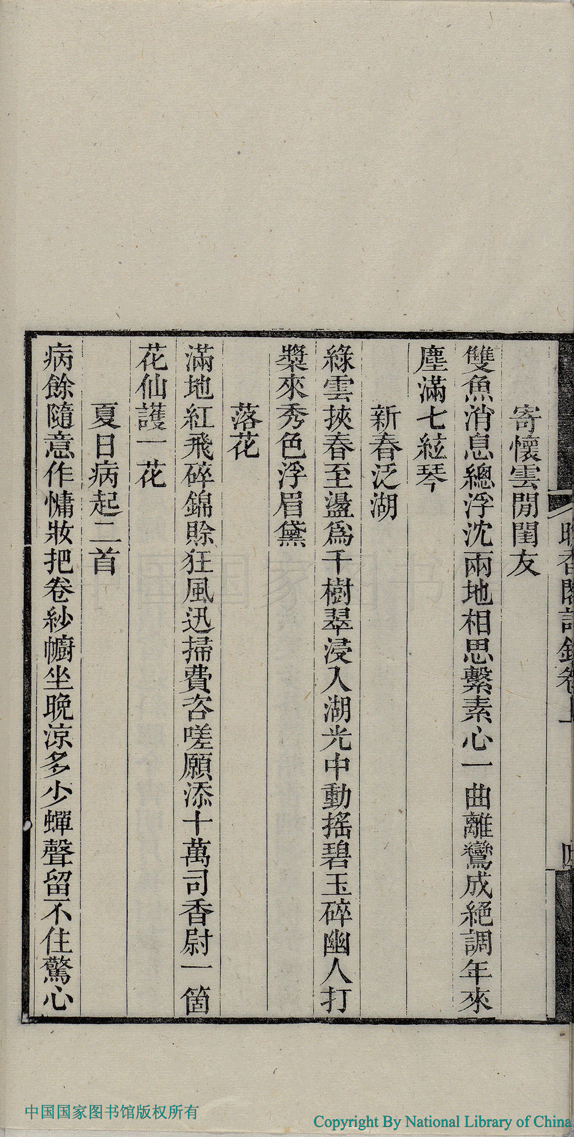 寄懷雲閒閨友
雙魚消息總浮沈兩地相思繫素心一曲離鸞成絕調年來
塵滿七絃琴
新春泛湖
綠雲挾春至盪爲千樹翠浸入湖光中動搖碧玉碎幽人打
槳來秀色浮眉黛
落花
滿地紅飛碎錦賒狂風迅掃費咨嗟願添十萬司香尉一箇
花仙護一花
夏日病起二首
病餘隨意作慵妝把卷紗幮坐晚涼多少蟬聲留不住驚心
中国国家图书馆版权所有
Copyright By National Library of China